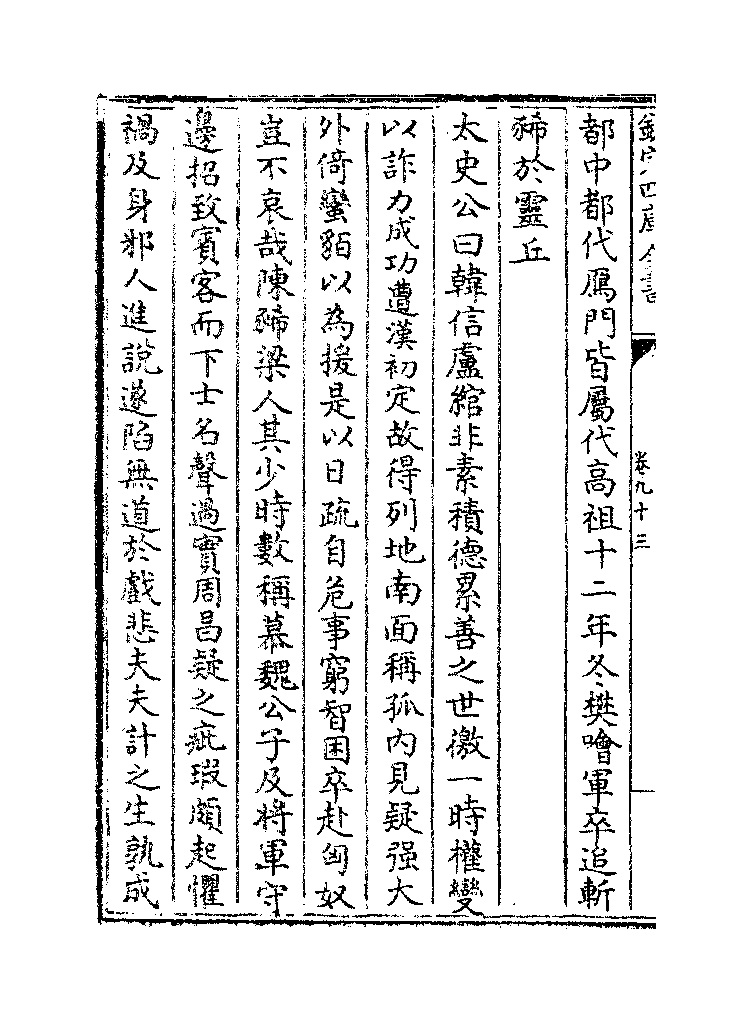 欽定四庫全書
卷九十三
都中都代鴈門皆屬代高祖十二年冬樊噲軍卒追斬
豨於靈丘
太史公曰韓信盧綰非素積德累善之世徼一時權變
以詐力成功遭漢初定故得列地南面稱孤内見疑强大
外倚蠻貊以為援是以日疏自危事窮智困卒赴匈奴
豈不哀哉陳豨梁人其少時數稱慕魏公子及將軍守
邊招致賓客而下士名聲過實周昌疑之疵瑕頗起懼
禍及身邪人進說遂陷無道於戲悲夫夫計之生孰成